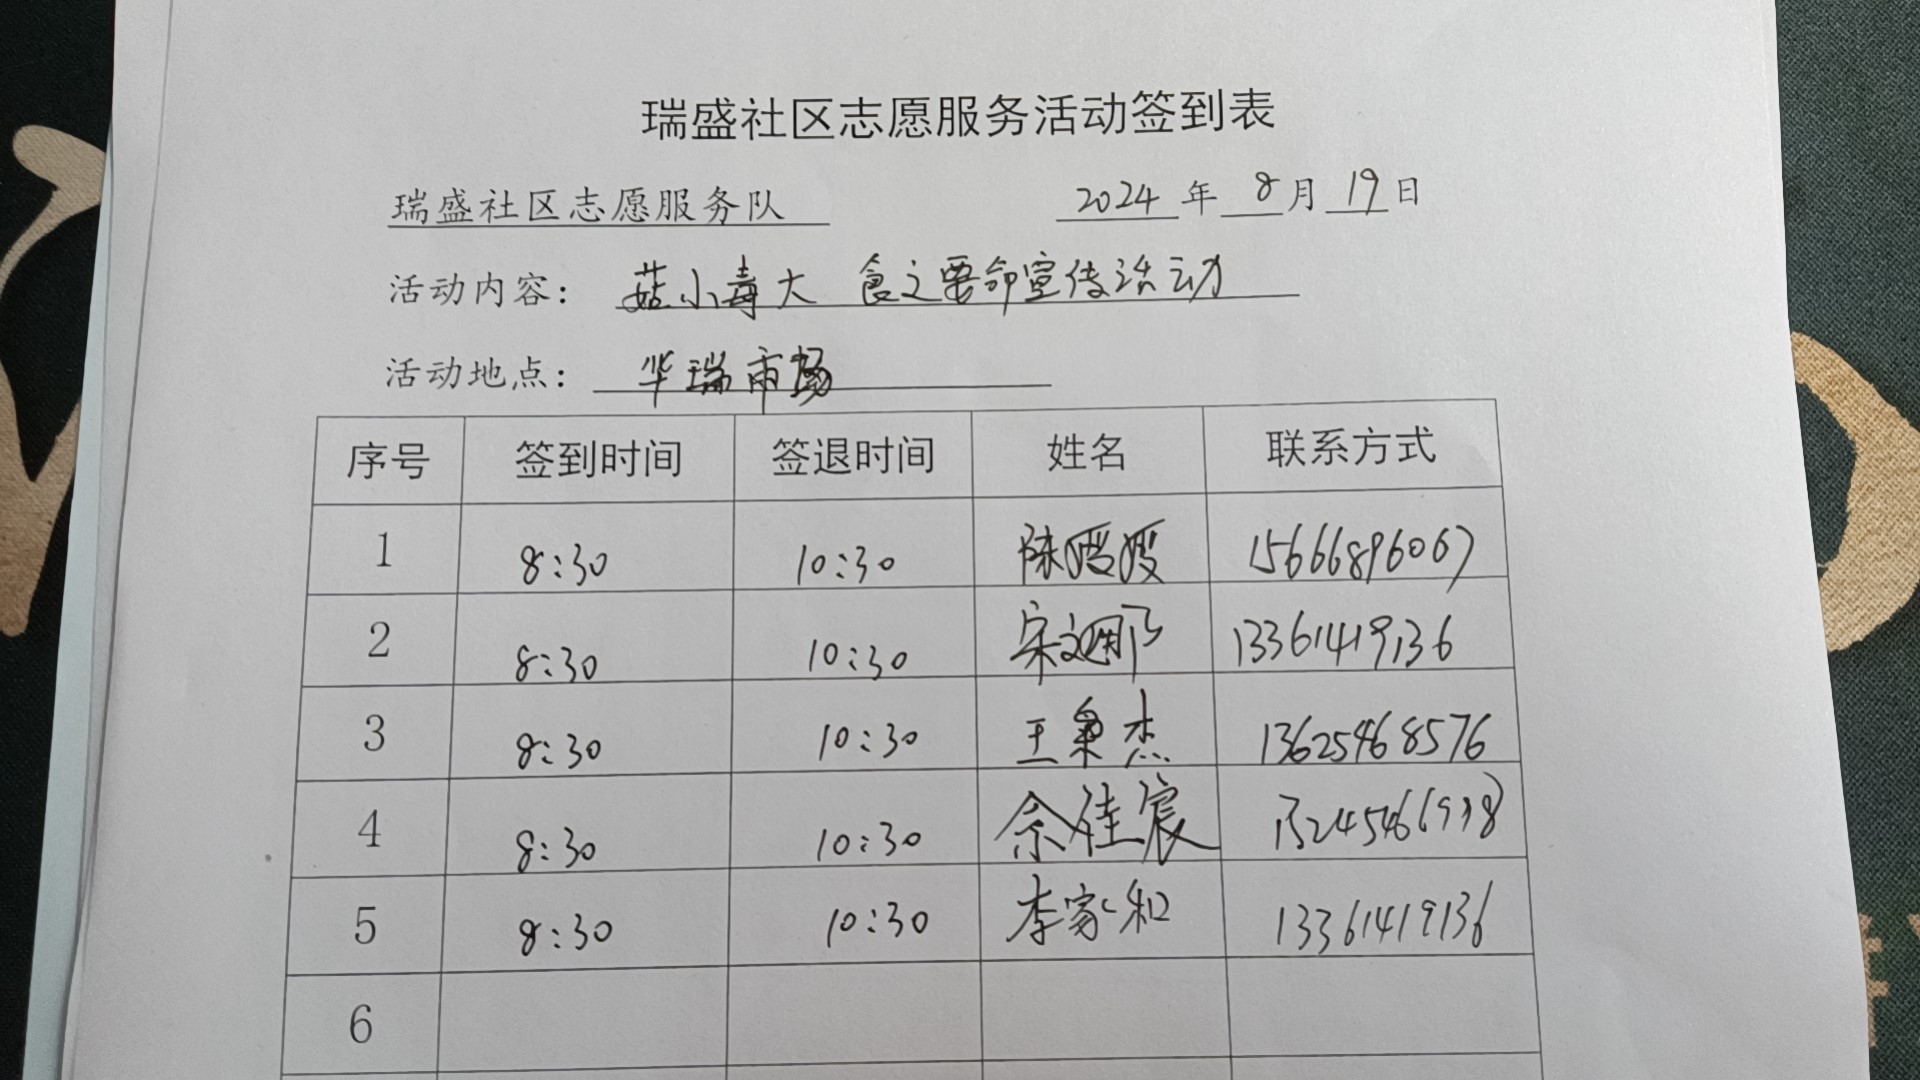 瑞盛社区志愿服务活动签到表
瑞盛社区志愿服务队 2024年8月19日
活动内容： 菇小毒大 食之要命宣传活动
活动地点： 华瑞市场
序号 签到时间 签退时间 姓名 联系方式
1 8:30 10:30 陈 15666896067
2 8:30 10:30 宋 13361419136
3 8:30 10:30 王秉杰 13625468576
4 8:30 10:30 佳宸
5 8:30 10:30 李家和 13361419136
6